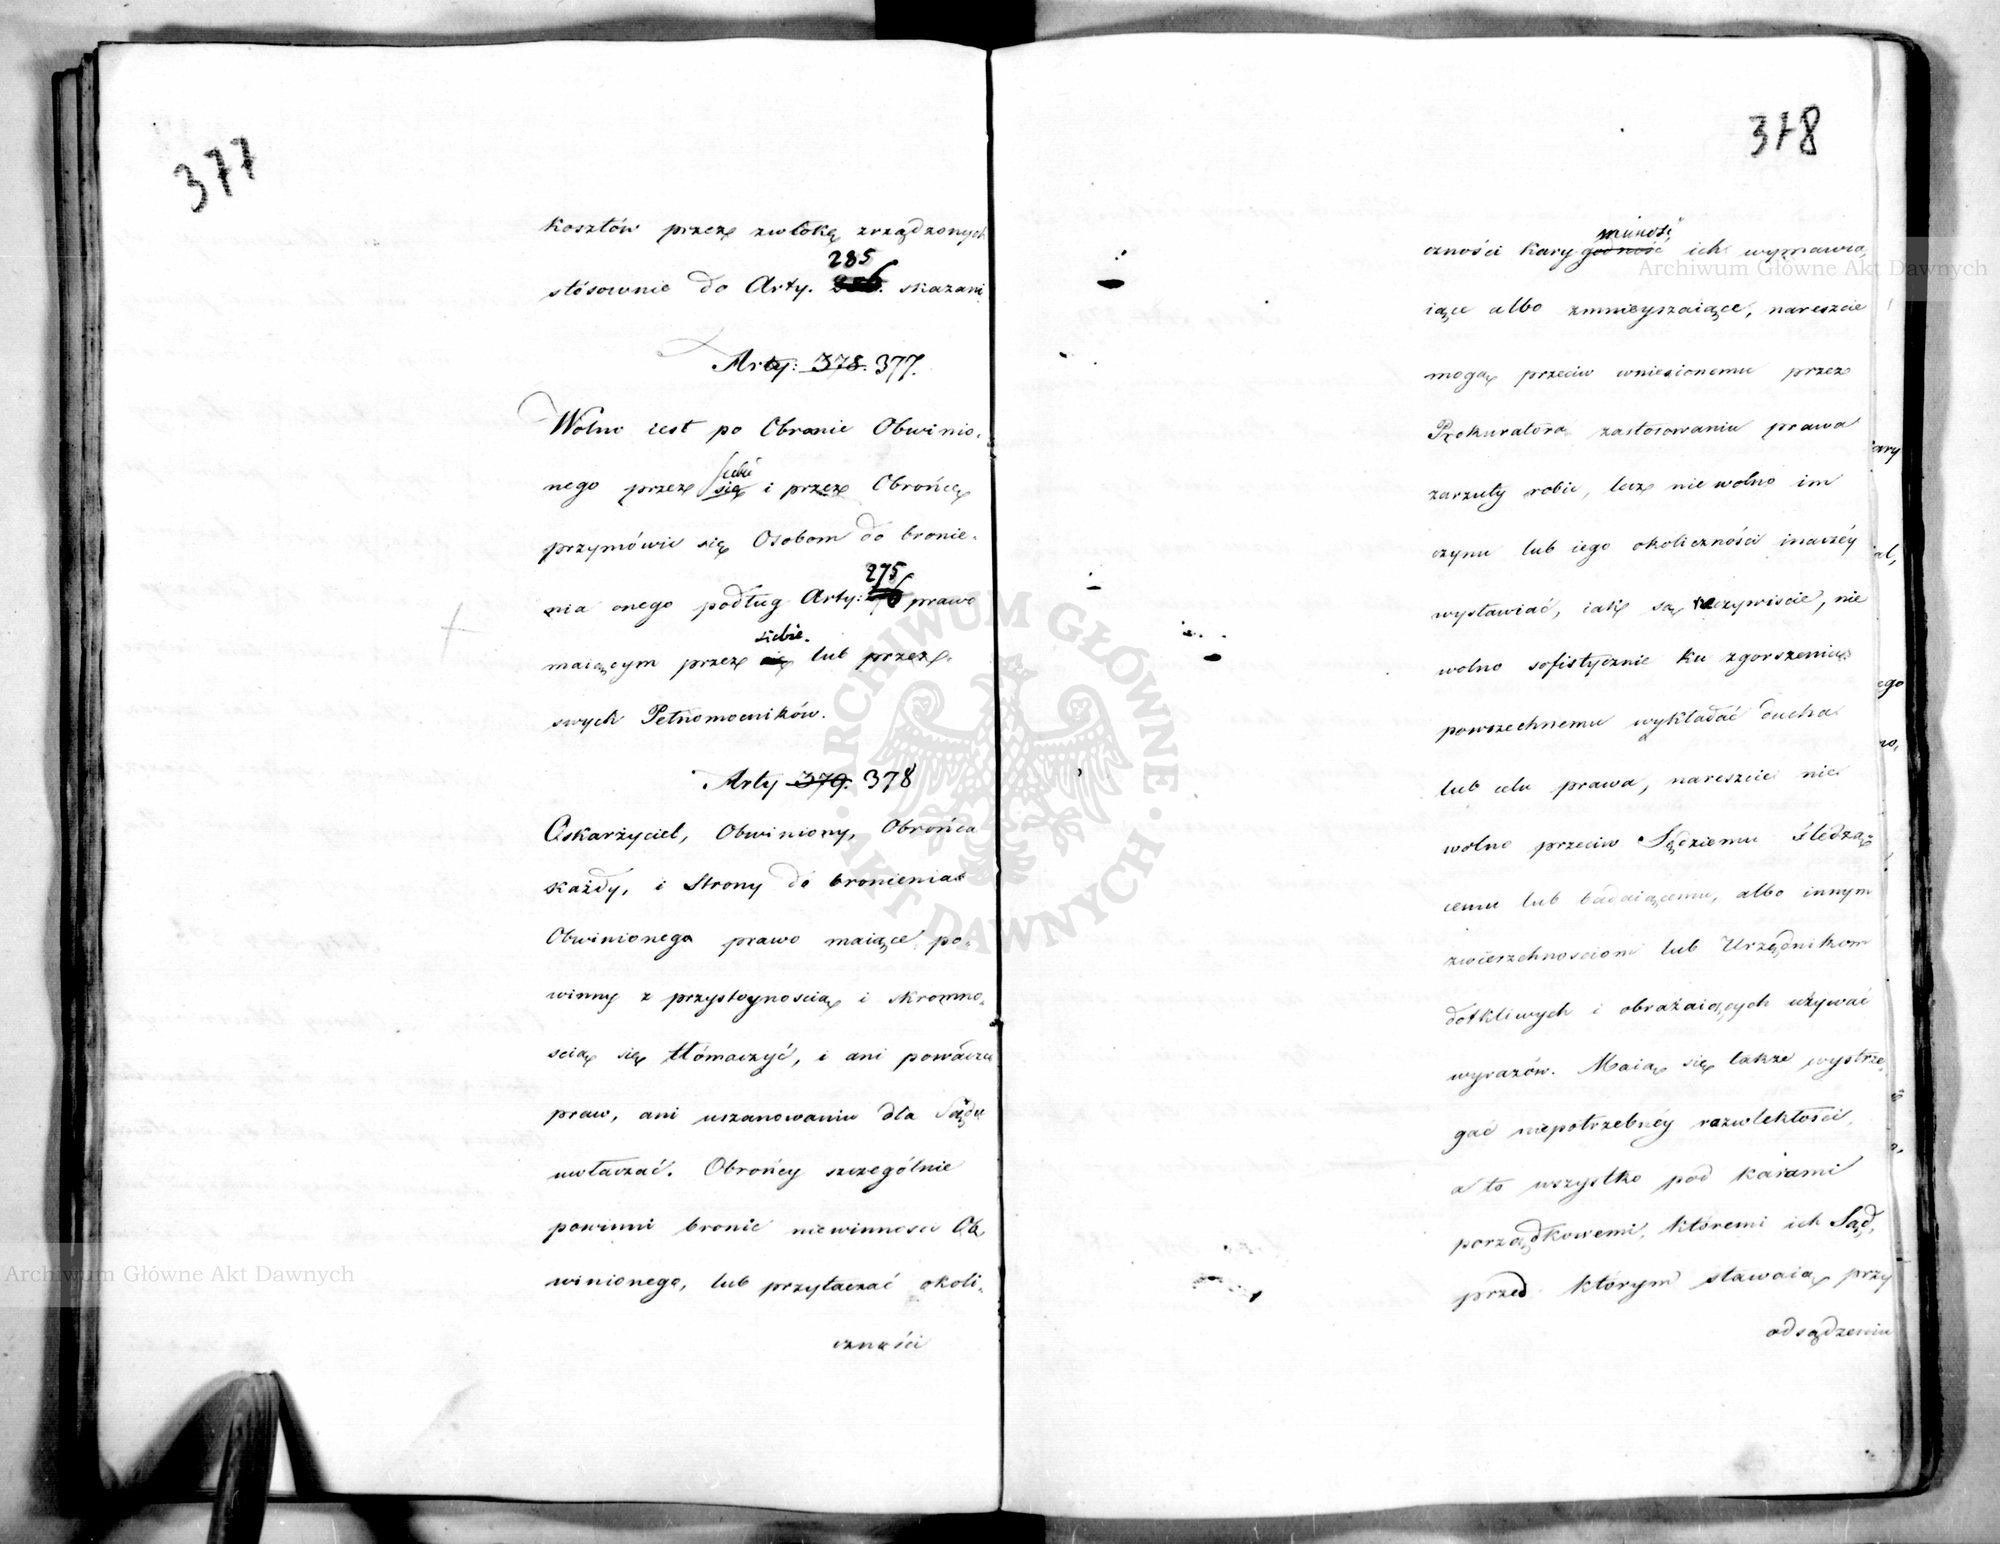 377
kosztów przez zwłokę zrządzonych
285
stósownie do Arty. 286. skazani
Arty: 378. 377.
Wolno iest po Obronie Obwinio,
siebie
nego przez się i przez Obrońcę
przymówić się Osobom do bronie,
275
nia onego podług Arty: prawo
siebie.
maiącym przez się lub przez
swych Pełnomocników.
Arty 379. 378
Oskarżyciel, Obwiniony, Obrońca
każdy, i Strony do bronienia
Obwinionego prawo maiące, po,
winny z przystoynoscią i skromno,
scią się tłómaczyć, i ani powadze
praw, ani uszanowaniu dla Sądu
uwłaczać. Obrońcy szczególnie
powinni bronić niewinnosci Ob,
winionego, lub przytaczać okoli,
czności
378
czności kary godność ich wymawia,
iące albo zmnieyszaiące, nareszcie
mogą przeciw wniesionemu przez
Prokuratora zastosowaniu prawa
zarzuty robić, lecz nie wolno im
czynu lub iego okoliczności inaczéy
wystawiać, iak są rzeczywiscie, nie
wolno sofistycznie ku zgorszeniu
powszechnemu wykładać ducha
lub celu prawa, nareszcie nie
wolno przeciw Sędziemu śledzą,
cemu lub badaiącemu, albo innym
zwierzchnosciom lub Urzędnikom
dotkliwych i obrażaiących używać
wyrazów. Maią się także wystrze,
gać niepotrzebnéy rozwlekłości,
a to wszystko pod karami
porządkowemi, któremi ich Sąd,
przed którym stawaią przy
odsądzeniu
Archiwum Główne Akt Dawnych
Archiwum Główne Akt Dawnych
ARCHIWUM GŁÓWNE
AKT DAWNYCH